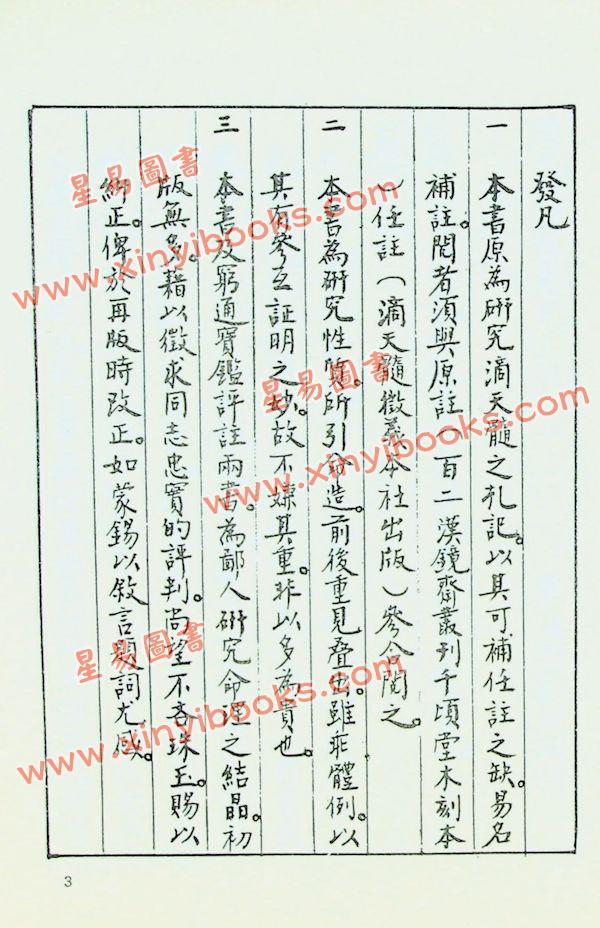 發凡
一 本書原為研究滴天髓之札記。以其可補任註之缺。易名
補註。閱者須與原註（百二漢鏡齋叢刊千頃堂木刻本
）任註（滴天髓徵義本社出版）參合閱之。
二 本書為研究性質。所引命造。前後重見叠出。雖乖體例。以
其有參互証明之妙。故不嫌其重。非以多為貴也。
三 本書及窮通寶鑑評註兩書。為鄙人研究命理之結晶。初
版無多。藉以徵求同志忠實的評判。尚望不吝珠玉。賜以
糾正。俾於再版時改正。如蒙錫以敘言題詞尤感。
3
星易圖書
www.xinyibooks.com
星易圖書
www.xinyibooks.com
星易圖書
www.xinyibooks.com